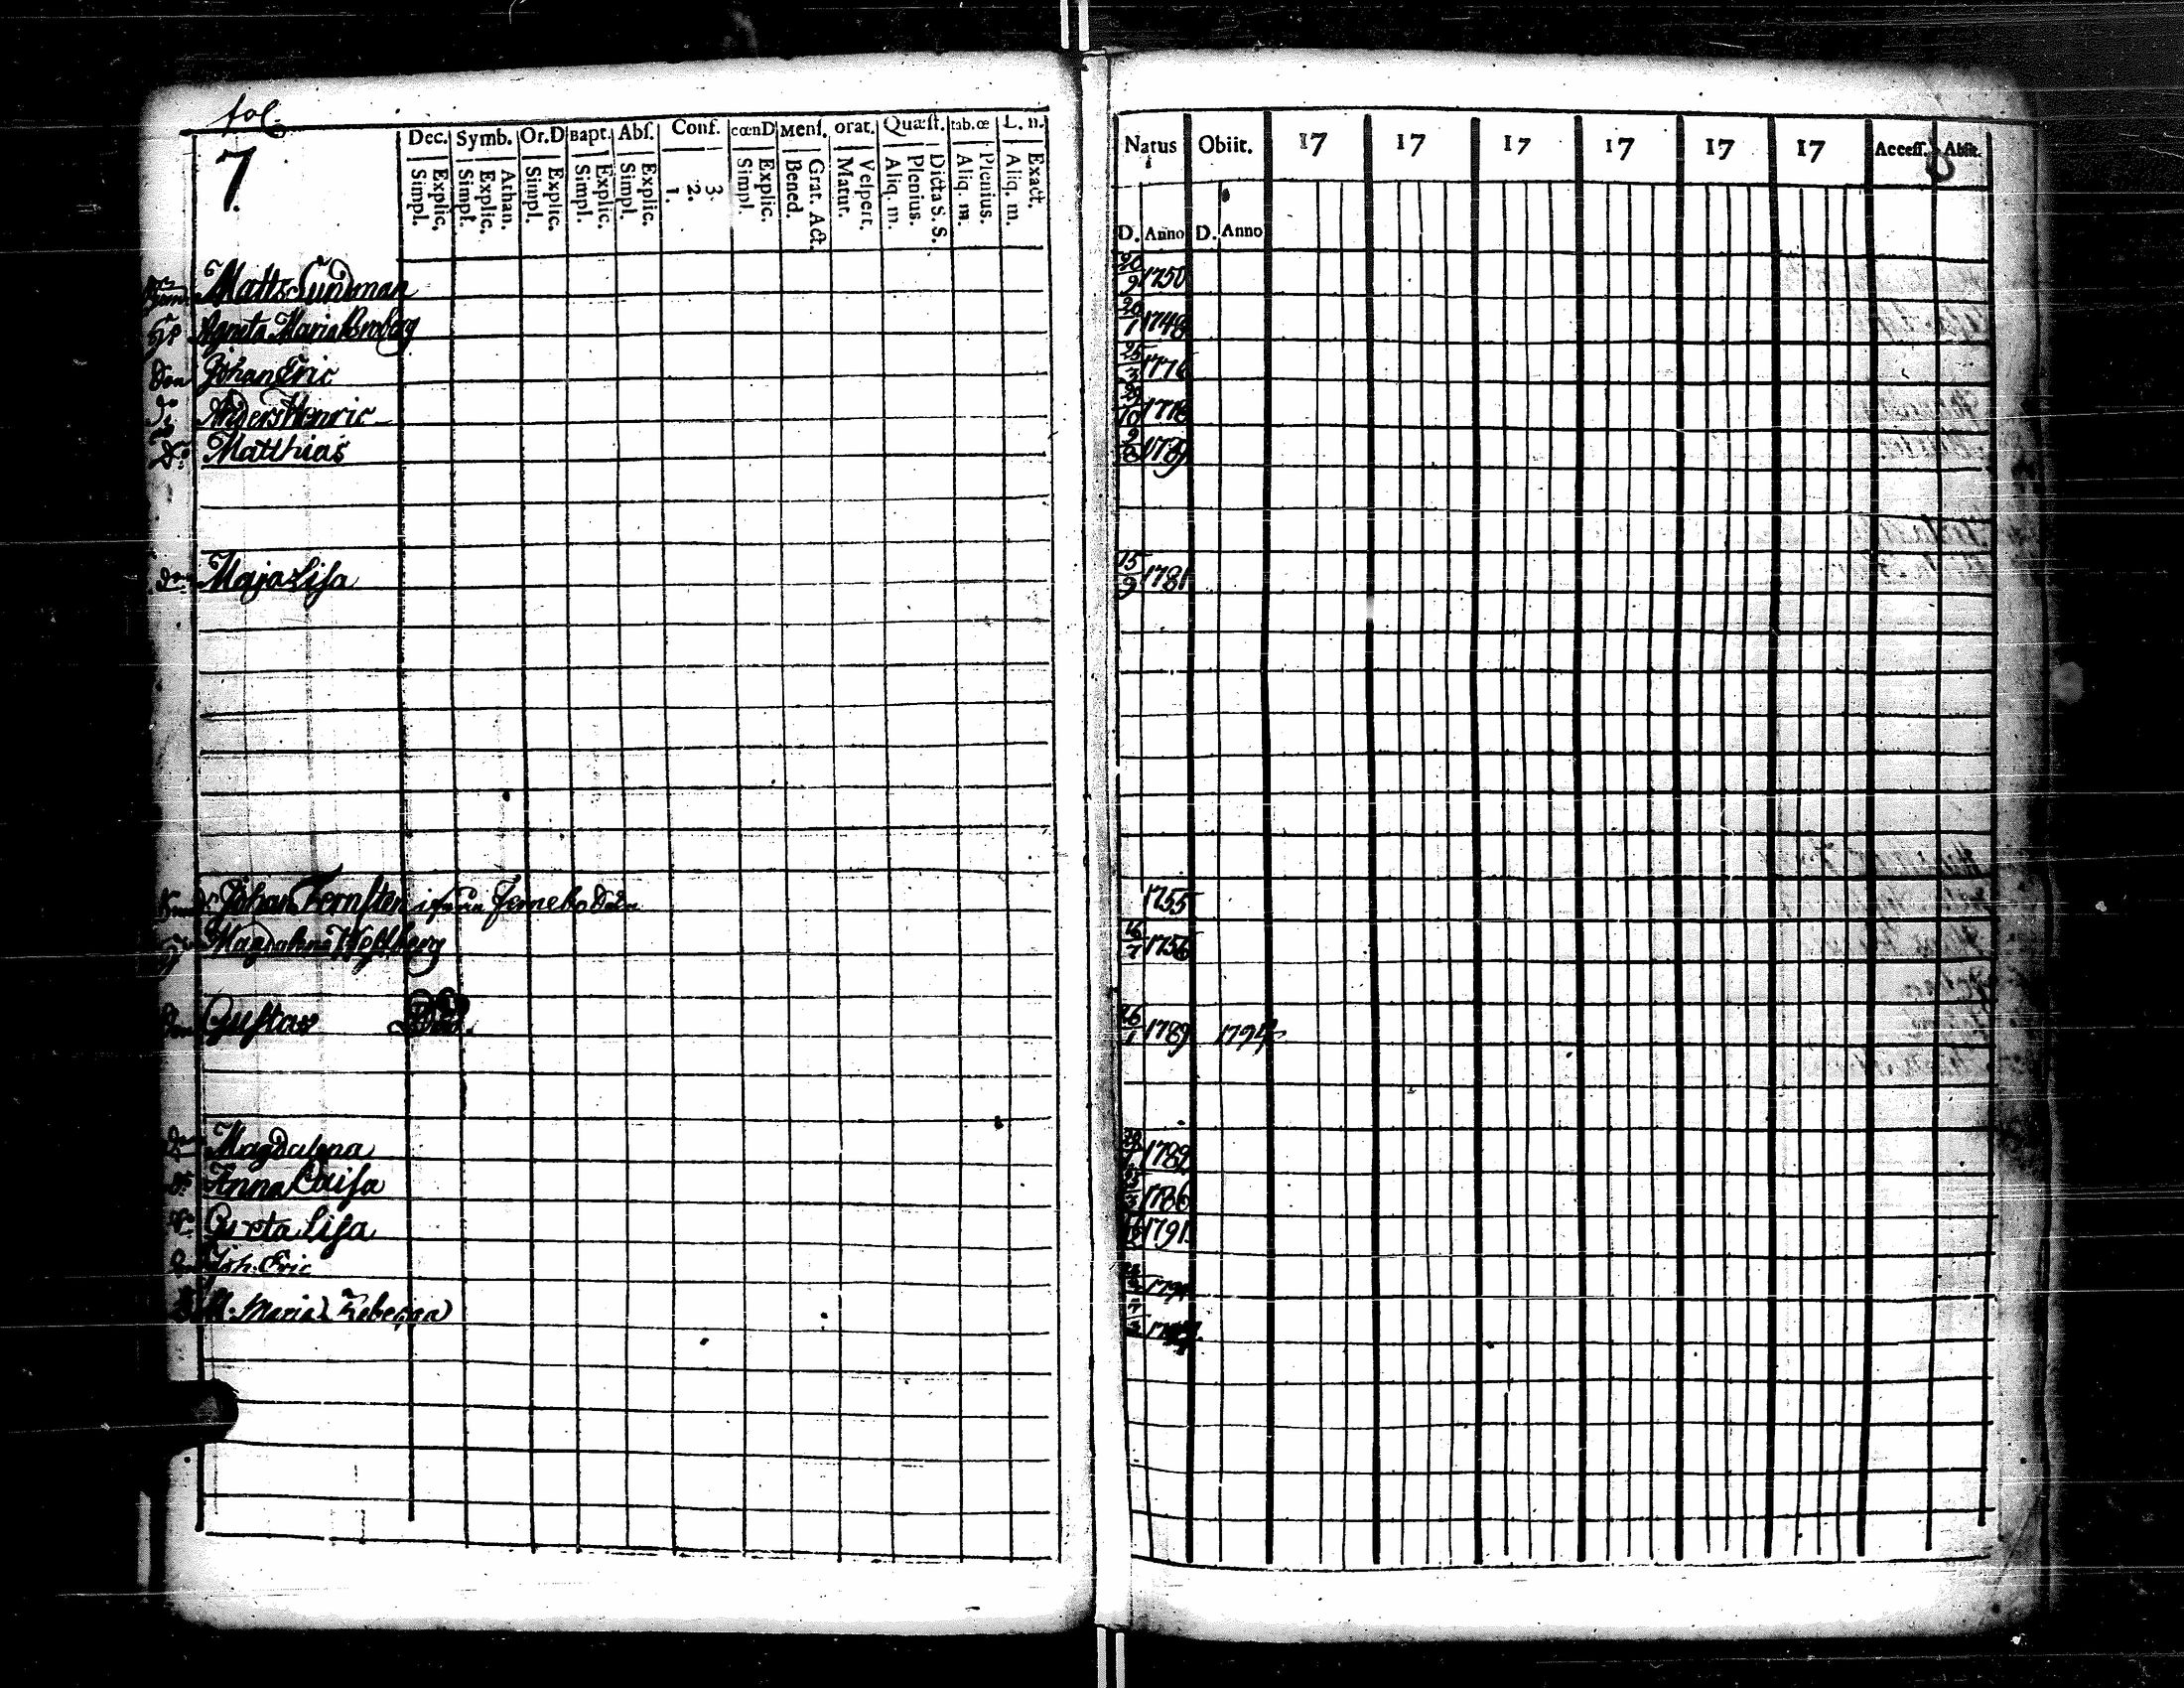 fol.
7.
Dec. Symb. Or.D Bapt. Abſ. Conf. cœnD Menſ. orat. Quæſt. tab.œ L. n.
Simpl. Explic. Simpl. Explic. Athan. Simpl. Explic. Simpl. Explic. Simpl. Explic. 1. 2. 3. Simpl. Explic. Bened. Grat. Act. Matut. Veſpert. Aliq. m. Plenius. Dicta S. S. Aliq. m. Plenius. Aliq. m. Exact.
Natus Obiit. 17 17 17 17 17 17 Acceſſ. Abiit.
D. Anno D. Anno
Matts Sundman 20/9 1750
H. Agneta Maria Broberg 20/1 1748
Son Johan Eric 25/3 1776
do Anders Henric 29/10 1778
Do Matthias 9/8 1789
Maja Lisa 15/9 1781
Johan Fernsten i Fernebo 1755
Magdalena Westberg 16/7 1756
Son Gustav död. 26/1 1789 1794
Magdalena 1782
Anna Caisa 1786
Do Greta Lisa 1791
Joh: Eric 1794
Maria Rebecca